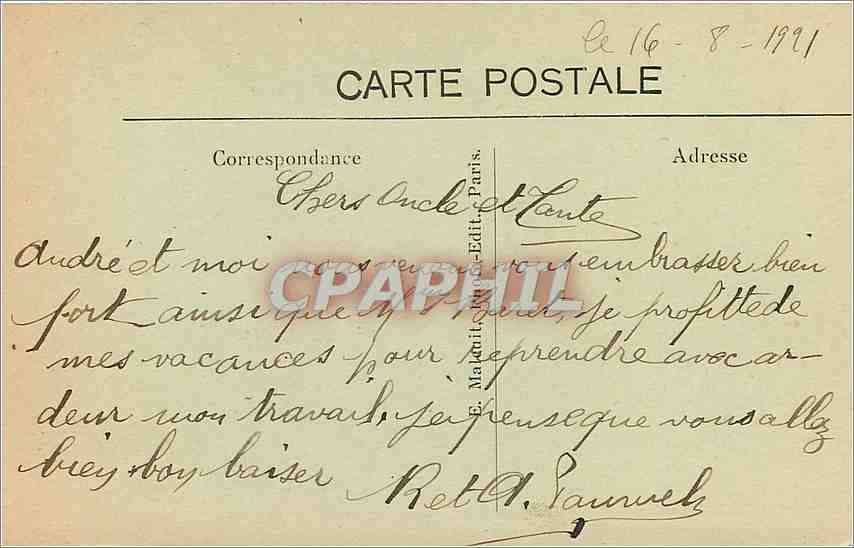 le 16 - 8 - 1921
CARTE POSTALE
Correspondance
Adresse
E. Mauduit, Edit., Paris.
Chers Oncle et Tante
André et moi nous venons vous embrasser bien
fort ainsi que je profitte de
mes vacances pour reprendre avec ar-
deur mon travail, je pense que vous allez
bien bon baiser
R et A. Pauwels
CPAPHIL